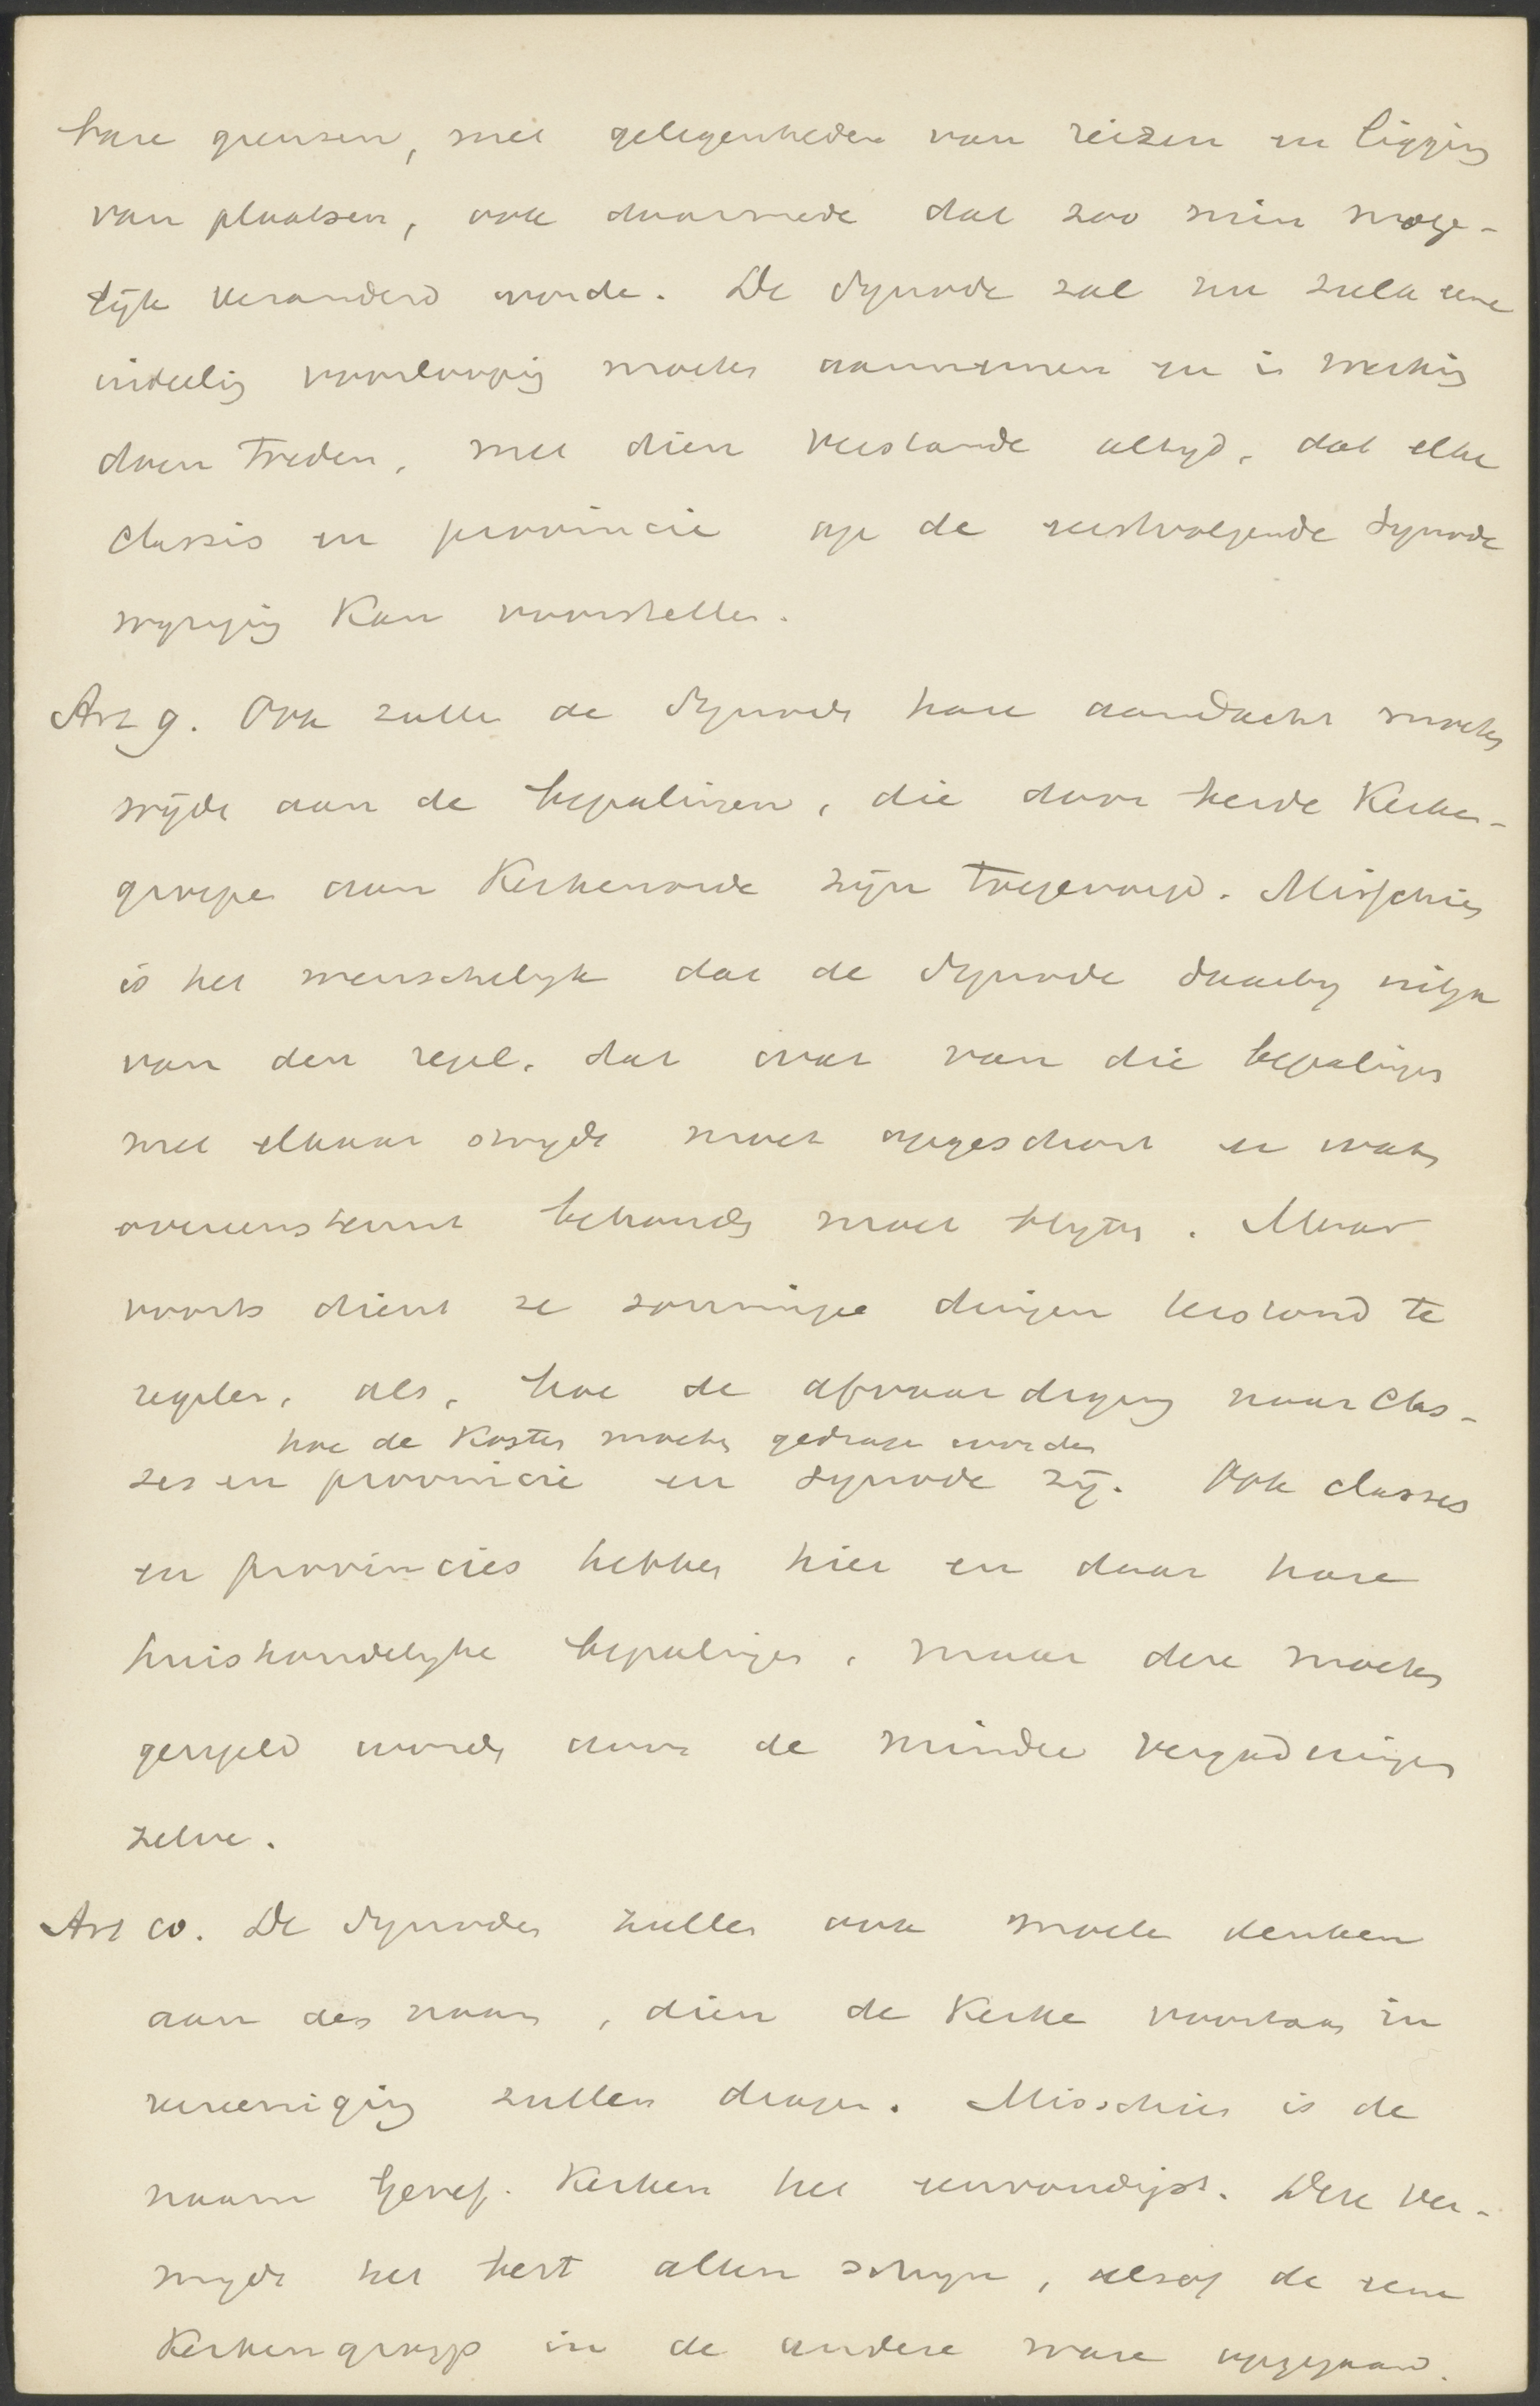 hare grenzen, met gelegenheden van reizen en ligging
van plaatsen, ook daarmede dat zoo min moge-
lijk veranderd worde. De Synode zal nu zulk eene
indeeling voorloopig moeten aannemen en in werking
doen treden, met dien verstande altijd, dat elke
classis en provincie op de eerstvolgende Synode
wijziging kan voorstellen.
Art 9. Ook zullen de Synodes hare aandacht moeten
wijden aan de bepalingen, die door beide Kerken-
groepen aan Kerkenorde zijn toegevoegd. Misschien
is het wenschelijk dat de Synode daarbij uitga
van den regel, dat wat van die bepalingen
met elkaar strijdt moet opgeschort en wat
overeenstemt behouden moet blijven. Maar
voorts dient ze sommige dingen terstond te
regelen, als, hoe de afvaardiging naar Clas-
hoe de Kosten moeten gedragen worden
ses en provincie en Synode zij. Ook classes
en provincies hebben hier en daar hare
huishoudelijke bepalingen, maar deze moeten
geregeld worden door de mindere vergaderingen
zelve.
Art 10. De Synodes zullen ook moeten denken
aan den naam, dien de Kerken voortaan in
vereeniging zullen dragen. Misschien is de
naam Geref. Kerken het eenvoudigst. Deze ver-
mijdt het best allen schijn, alsof de eene
Kerkengroep in de andere ware opgegaan.